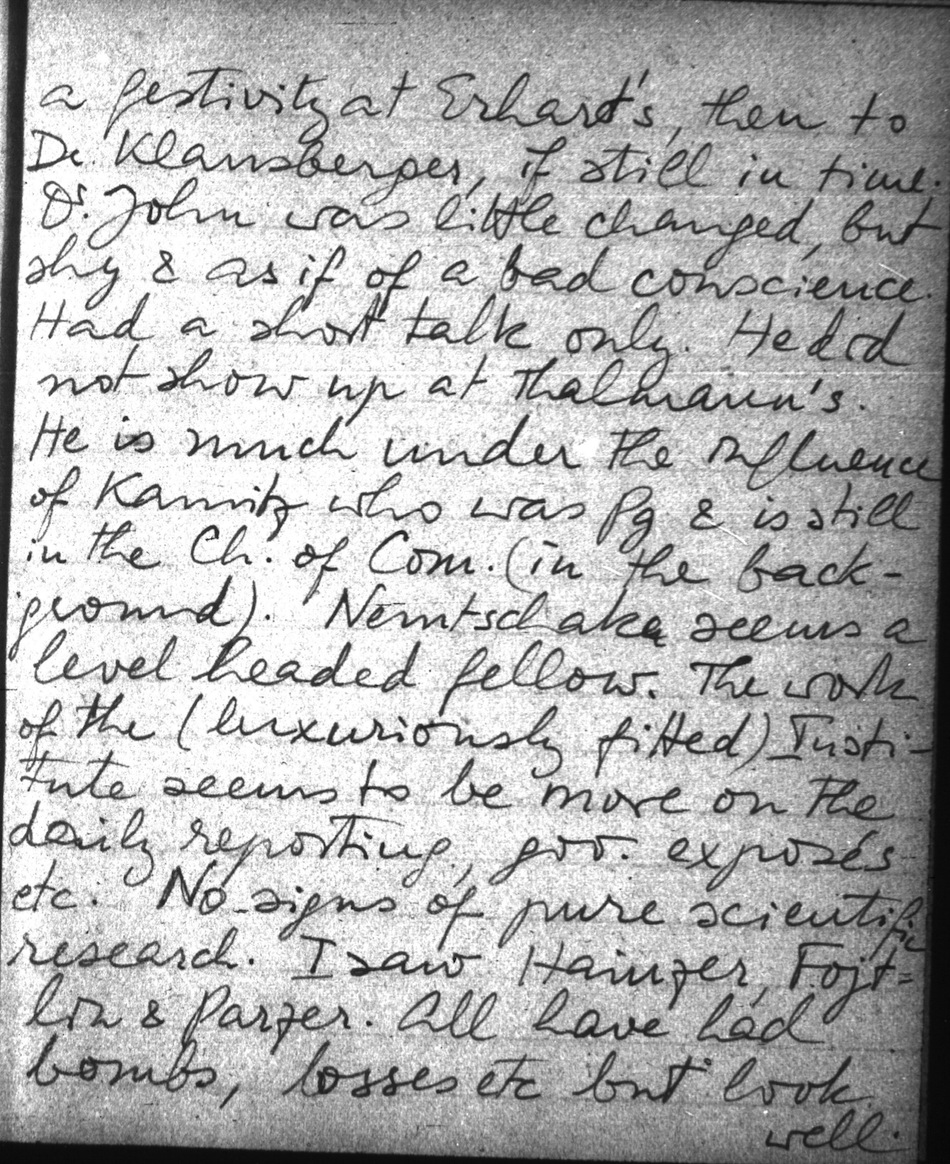 a festivity at Erhart's, then to
Dr. Klausberger, if still in time.
Dr. John was little changed, but
shy & as if of a bad conscience.
Had a short talk only. He did
not show up at Thalmann's.
He is much under the influence
of Kamitz who was Pg & is still
in the Ch. of Com. (in the back-
ground). Nemtschake seems a
level headed fellow. The work
of the (luxuriously fitted) Insti-
tute seems to be more on the
daily reporting, gov. exposés
etc. No signs of pure scientific
research. I saw Hainzer, Fojt=
lin & Parzer. All have had
bombs, losses etc but look
well.